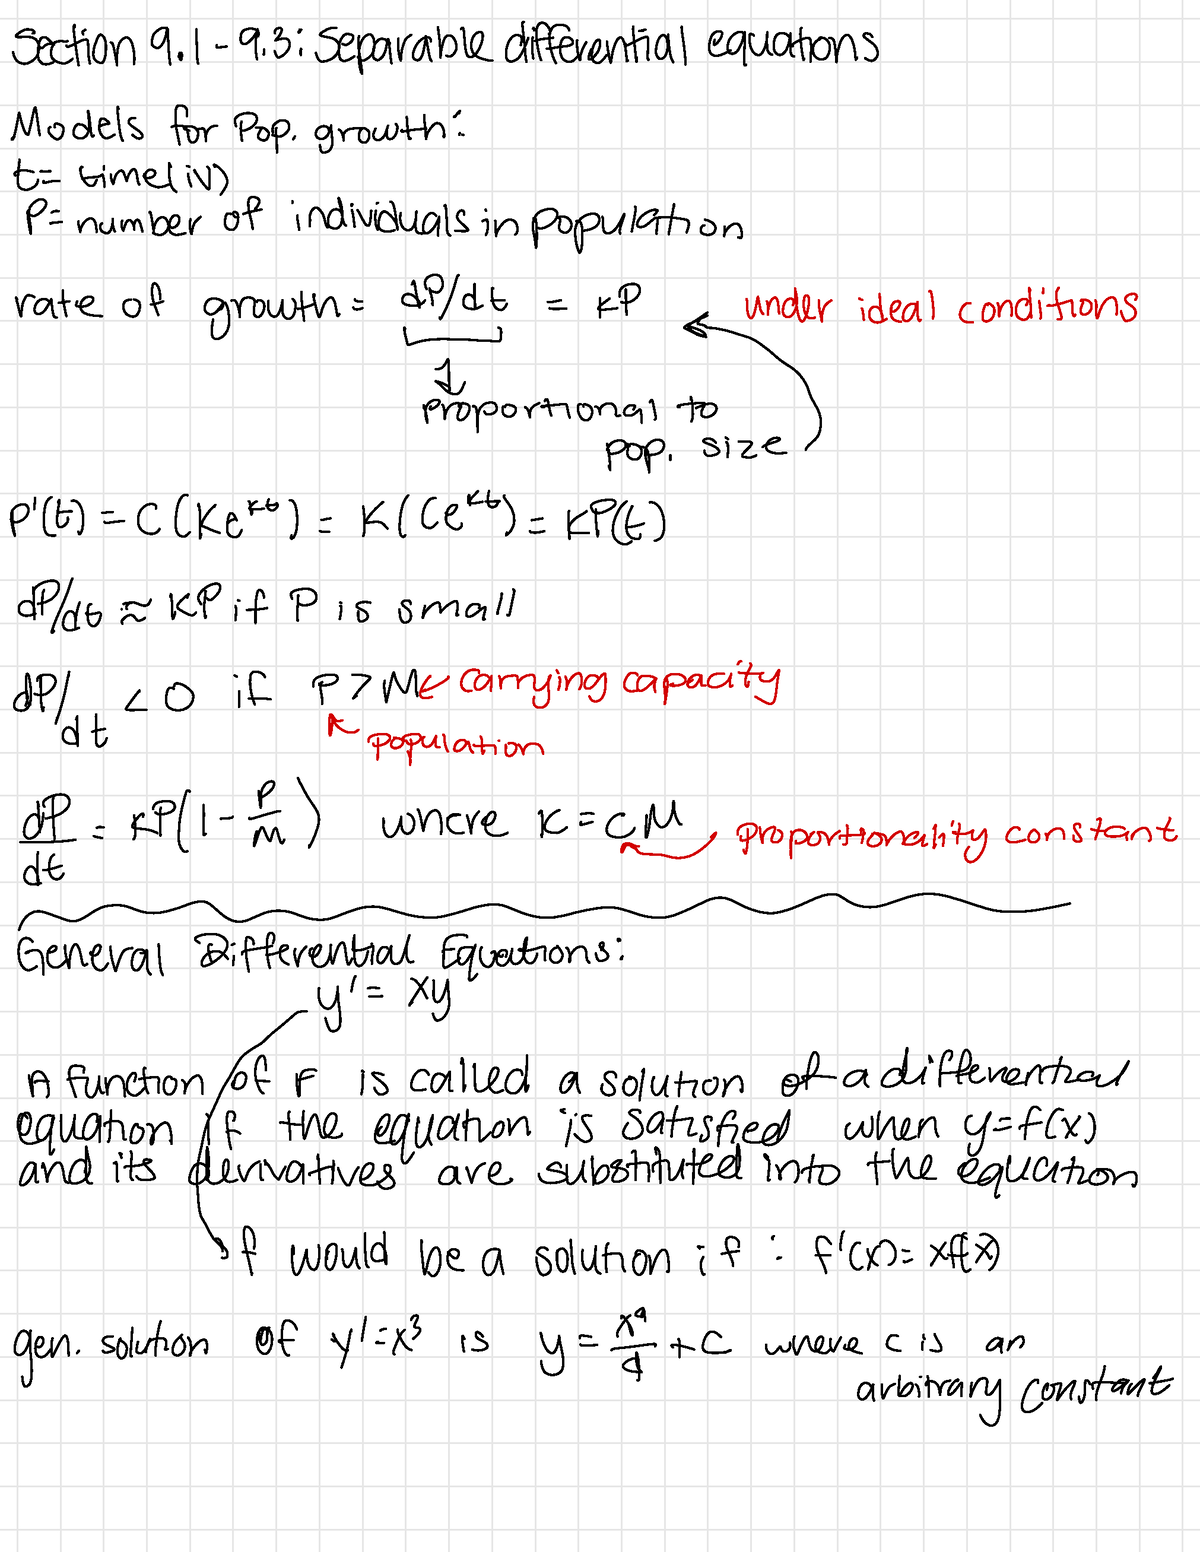 Section 9.1-9.3: Separable differential equations
Models for Pop. growth:
t= time(iv)
P= number of individuals in population
rate of growth = dP/dt = kP under ideal conditions
proportional to
pop. size
P'(t) = C(Ke^kt) = K(Ce^kt) = KP(t)
dP/dt ≈ KP if P is small
dP/dt < 0 if P > M ← carrying capacity
population
dP/dt = KP(1 - P/M) where K = CM, proportionality constant
General Differential Equations:
y' = xy
A function of F is called a solution of a differential
equation if the equation is satisfied when y=f(x)
and its derivatives are substituted into the equation
f would be a solution if : f'(x) = xf(x)
gen. solution of y'=x³ is y = x⁴/4 + C where c is an
arbitrary constant